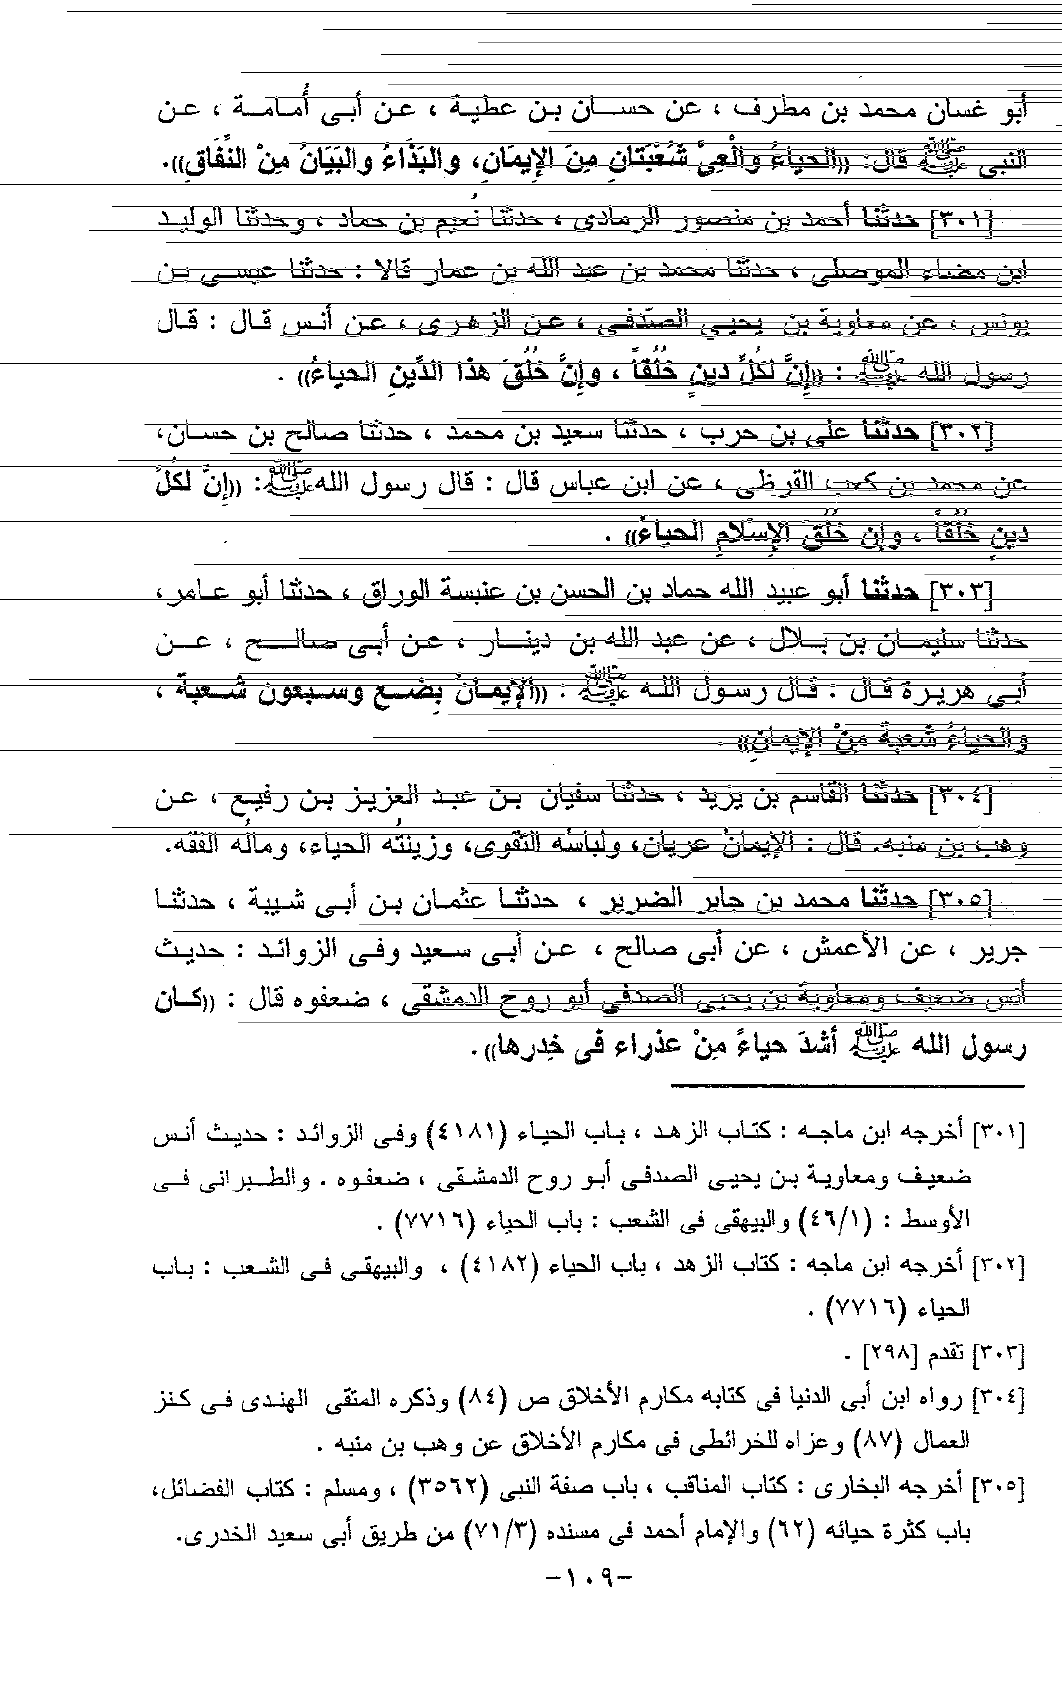 أبو غسان محمد بن مطرف ، عن حسان بن عطية ، عن أبى أُمامة ، عن
النبى ﷺ قال: ((الحياءُ والْعِىُّ شُعْبَتَانِ مِنَ الإِيمَانِ، والبَذَاءُ والبَيَانُ مِنْ النِّفَاقِ)).
[٣٠١] حدثنا أحمد بن منصور الرمادى ، حدثنا نعيم بن حماد ، وحدثنا الوليد
ابن مضاء الموصلى ، حدثنا محمد بن عبد الله بن عمار قالا : حدثنا عيسى بن
يونس ، عن معاوية بن يحيى الصَّدفى ، عن الزهرى ، عن أنس قال : قال
رسول الله ﷺ : ((إنَّ لكُلِّ دينٍ خُلُقاً ، وإنَّ خُلُقَ هذا الدِّينِ الحياءُ)) .
[٣٠٢] حدثنا على بن حرب ، حدثنا سعيد بن محمد ، حدثنا صالح بن حسان،
عن محمد بن كعب القرظى ، عن ابن عباس قال : قال رسول الله ﷺ: ((إنَّ لكُلِّ
دينٍ خُلُقاً ، وإن خُلُقَ الإِسْلامِ الحياءُ)) .
[٣٠٣] حدثنا أبو عبيد الله حماد بن الحسن بن عنبسة الوراق ، حدثنا أبو عامر،
حدثنا سليمان بن بلال ، عن عبد الله بن دينار ، عن أبى صالح ، عن
أبى هريرة قال : قال رسول الله ﷺ : ((الإيمانُ بِضع وسبعون شعبة ،
والحياءُ شعبةٌ مِنْ الإيمانِ)) .
[٣٠٤] حدثنا القاسم بن يزيد ، حدثنا سفيان بن عبد العزيز بن رفيع ، عن
وهب بن منبه. قال : الإيمانُ عريان، ولباسُه التقوى، وزينتُه الحياء، ومالُه الفقه.
[٣٠٥] حدثنا محمد بن جابر الضرير ، حدثنا عثمان بن أبى شيبة ، حدثنا
جرير ، عن الأعمش ، عن أبى صالح ، عن أبى سعيد وفى الزوائد : حديث
أنس ضعيف ومعاوية بن يحيى الصدفى أبو روح الدمشقى ، ضعفوه قال : ((كان
رسول الله ﷺ أشدَ حياءً مِنْ عذراء فى خِدرها)) .
[٣٠١] أخرجه ابن ماجه : كتاب الزهد ، باب الحياء (٤١٨١) وفى الزوائد : حديث أنس
ضعيف ومعاوية بن يحيى الصدفى أبو روح الدمشقى ، ضعفوه . والطبرانى فى
الأوسط : (٤٦/١) والبيهقى فى الشعب : باب الحياء (٧٧١٦) .
[٣٠٢] أخرجه ابن ماجه : كتاب الزهد ، باب الحياء (٤١٨٢) ، والبيهقى فى الشعب : باب
الحياء (٧٧١٦) .
[٣٠٣] تقدم [٢٩٨] .
[٣٠٤] رواه ابن أبى الدنيا فى كتابه مكارم الأخلاق ص (٨٤) وذكره المتقى الهندى فى كنز
العمال (٨٧) وعزاه للخرائطى فى مكارم الأخلاق عن وهب بن منبه .
[٣٠٥] أخرجه البخارى : كتاب المناقب ، باب صفة النبى (٣٥٦٢) ، ومسلم : كتاب الفضائل،
باب كثرة حيائه (٦٢) والإمام أحمد فى مسنده (٧١/٣) من طريق أبى سعيد الخدرى.
-١٠٩-